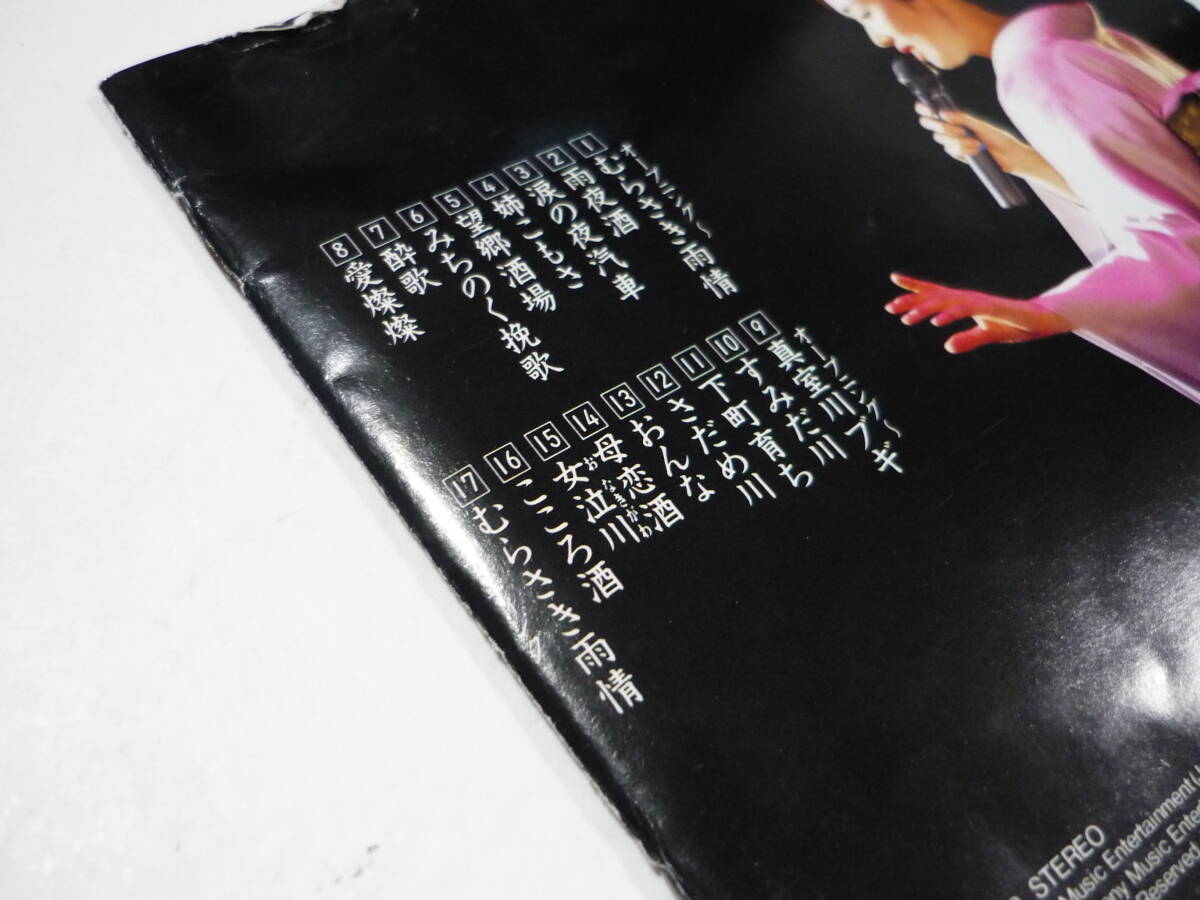 1 オープニング〜
むらさき雨情
2 雨夜酒
3 涙の夜汽車
4 姉こもさ
5 望郷酒場
6 みちのく挽歌
7 酔歌
8 愛燦燦
9 オープニング〜
真室川ブギ
10 すみだ川
11 下町育ち
12 さだめ川
13 おんな
14 母恋酒
15 女泣川
おなきがわ
16 こころ酒
17 むらさき雨情
STEREO
Music Entertainment
Music
Reserved.